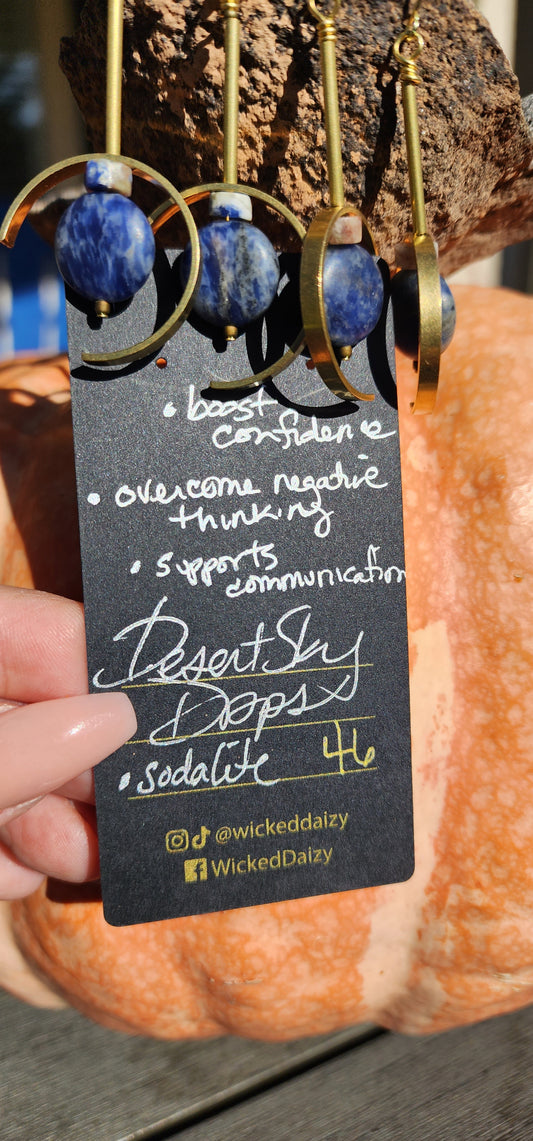 • boost
confidence
• overcome negative
thinking
• supports
communication
Desert Sky
Drops
• sodalite 46
@wickeddaizy
WickedDaizy